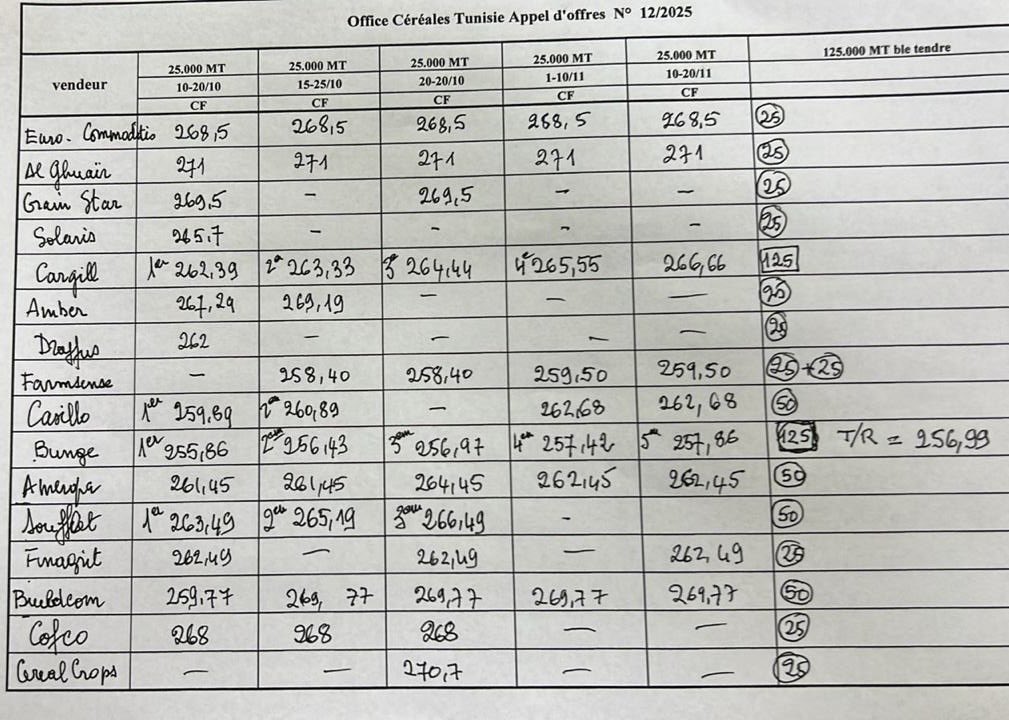 Office Céréales Tunisie Appel d'offres N° 12/2025
vendeur 25.000 MT 25.000 MT 25.000 MT 25.000 MT 25.000 MT 125.000 MT ble tendre
10-20/10 15-25/10 20-20/10 1-10/11 10-20/11
CF CF CF CF CF
Euro. Commoditis 268,5 268,5 268,5 268,5 268,5 25
Al Ghurair 271 271 271 271 271 25
Grain Star 269,5 – 269,5 – – 25
Solaris 265.7 – – – – 25
Cargill 1er 262,39 2e 263,33 3e 264,44 4e 265,55 266,66 125
Amber 267,29 269,19 – – – 25
Dreffus 262 – – – – 25
Farmsense – 258,40 258,40 259,50 259,50 25 + 25
Casillo 1er 259,89 2e 260,89 – 262,68 262,68 50
Bunge 1er 255,86 2em 256,43 3em 256,97 4em 257,42 5em 257,86 125 T/R = 256,99
Ameropa 261,45 261,45 264,45 262,45 262,45 50
Soufflet 1er 263,49 2em 265,19 3em 266,49 – 50
Finagrit 262,49 – 262,49 – 262,49 25
Buildcom 259,77 269,77 269,77 269,77 269,77 50
Cofco 268 268 268 – – 25
Cereal Crops – – 270,7 – – 25